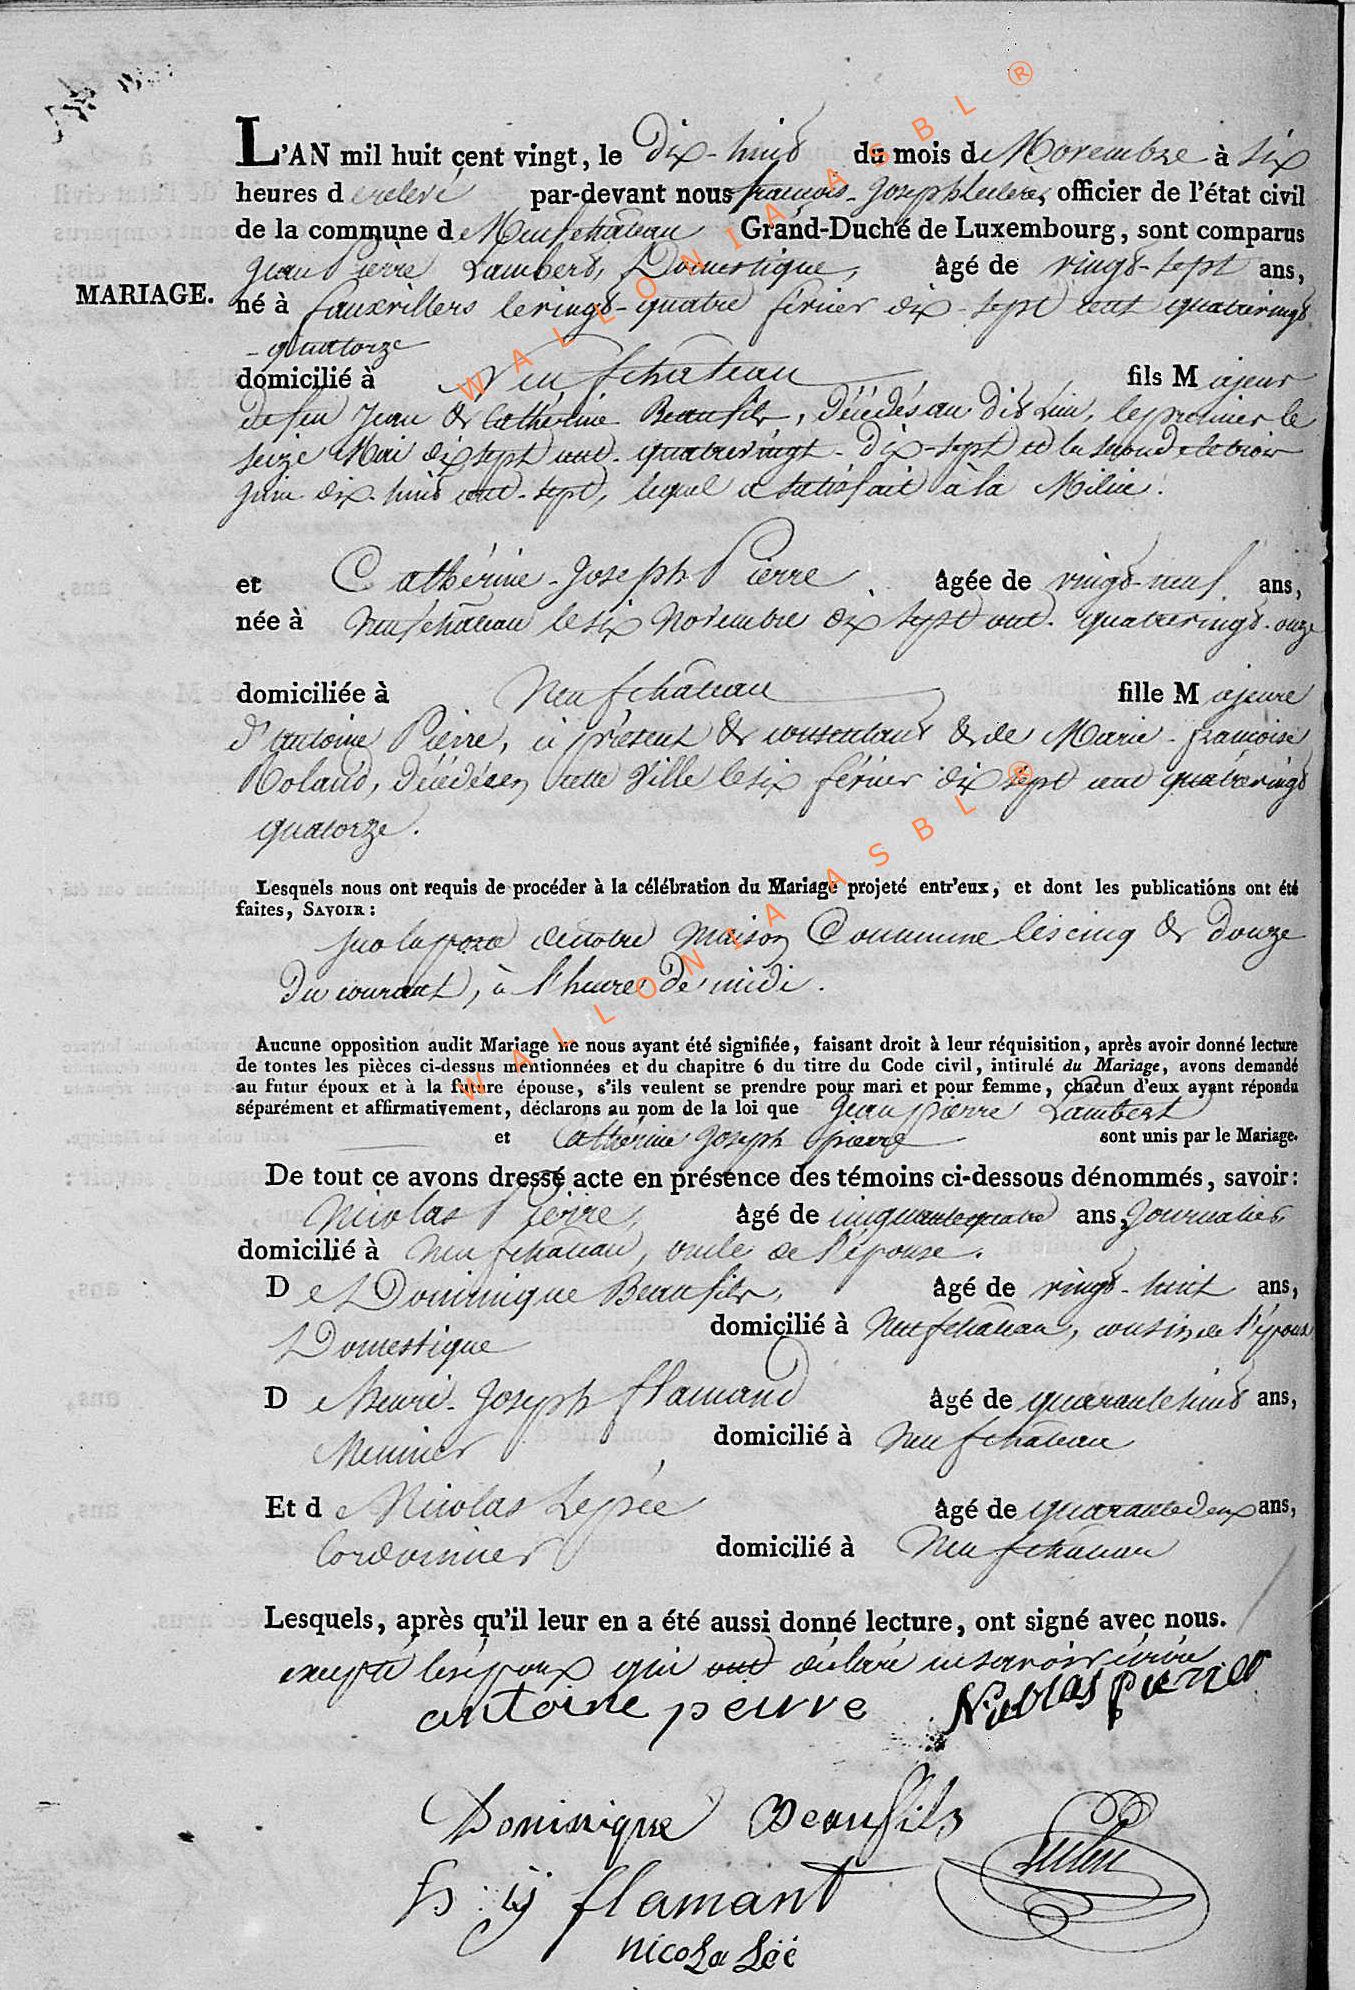 L'AN mil huit cent vingt, le Dix-huit du mois de Novembre à six
heures de relevé par-devant nous françois-Joseph Leclerc, officier de l'état civil
de la commune de Neufchâteau Grand-Duché de Luxembourg, sont comparus
Jean Pierre Lambert, Domestique, âgé de vingt-sept ans,
MARIAGE.
né à fauxvillers le vingt-quatre février dix-sept cent quatrevingt
-quatorze
domicilié à Neufchateau fils Majeur
de feu Jean & Cathérine Beaufils, décédés au dit Lieu, le premier le
seize Mai dix sept cent quatrevingt-dix-sept et la seconde le trois
juin dix-huit cent-sept, lequel a satisfait à la Milice.
et Cathérine-Joseph Pierre âgée de vingt-neuf ans,
née à Neufchâteau le six Novembre dix sept cent quatrevingt-onze
domiciliée à Neufchâteau fille Majeure
d'antoine Pierre, ci présent & consentant & de Marie-françoise
Roland, décédée en cette Ville le six février dix sept cent quatrevingt
quatorze.
Lesquels nous ont requis de procéder à la célébration du Mariage projeté entr'eux, et dont les publications ont été
faites, SAVOIR :
sur la porte de notre Maison Commune les cinq & douze
du courant, à l'heure de midi.
Aucune opposition audit Mariage ne nous ayant été signifiée, faisant droit à leur réquisition, après avoir donné lecture
de toutes les pièces ci-dessus mentionnées et du chapitre 6 du titre du Code civil, intitulé du Mariage, avons demandé
au futur époux et à la future épouse, s'ils veulent se prendre pour mari et pour femme, chacun d'eux ayant répondu
séparément et affirmativement, déclarons au nom de la loi que Jean pierre Lambert
et Cathérine Joseph pierre sont unis par le Mariage.
De tout ce avons dressé acte en présence des témoins ci-dessous dénommés, savoir :
Nicolas Pierre, âgé de cinquante quatre ans, Journalier,
domicilié à Neufchâteau, oncle de l'épouse.
De Dominique Beaufils, âgé de vingt-huit ans,
Domestique domicilié à Neufchateau, cousin de l'époux
De Henri-Joseph flamand âgé de quarante huit ans,
Meunier domicilié à Neufchâteau
Et de Nicolas Lepée âgé de quarante deux ans,
Cordonnier domicilié à Neufchâteau
Lesquels, après qu'il leur en a été aussi donné lecture, ont signé avec nous.
excepté les époux qui ont déclaré ne savoir écrire
antoine peirre Nicolas pierret
Dominique Beaufils
h : ij flamant
nicoLa Léé
WALLONIA ASBL ®
WALLONIA ASBL ®